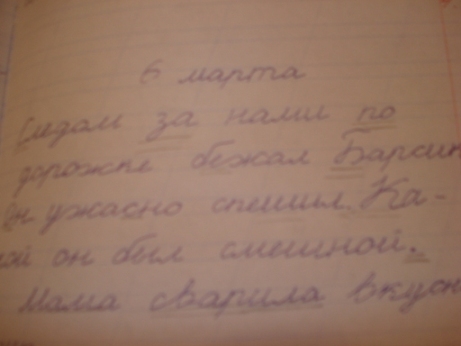 6 марта
Сидам за нами по
дорожке бежал Барсик
Он ужасно спешил. Ка-
кой он был смешной.
Мама сварила вкусн